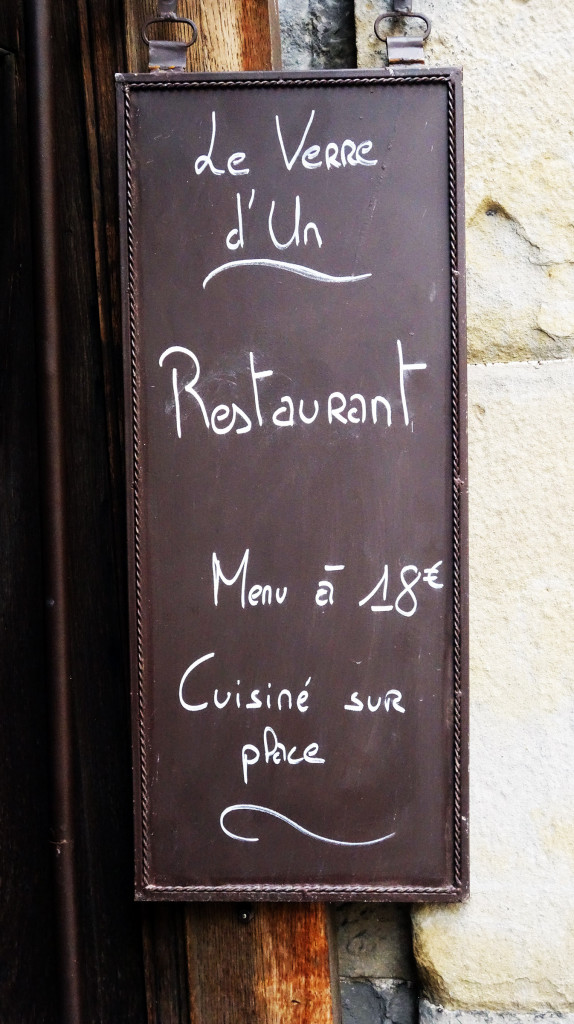 Le Verre
d'Un
Restaurant
Menu à 18€
Cuisiné sur
place